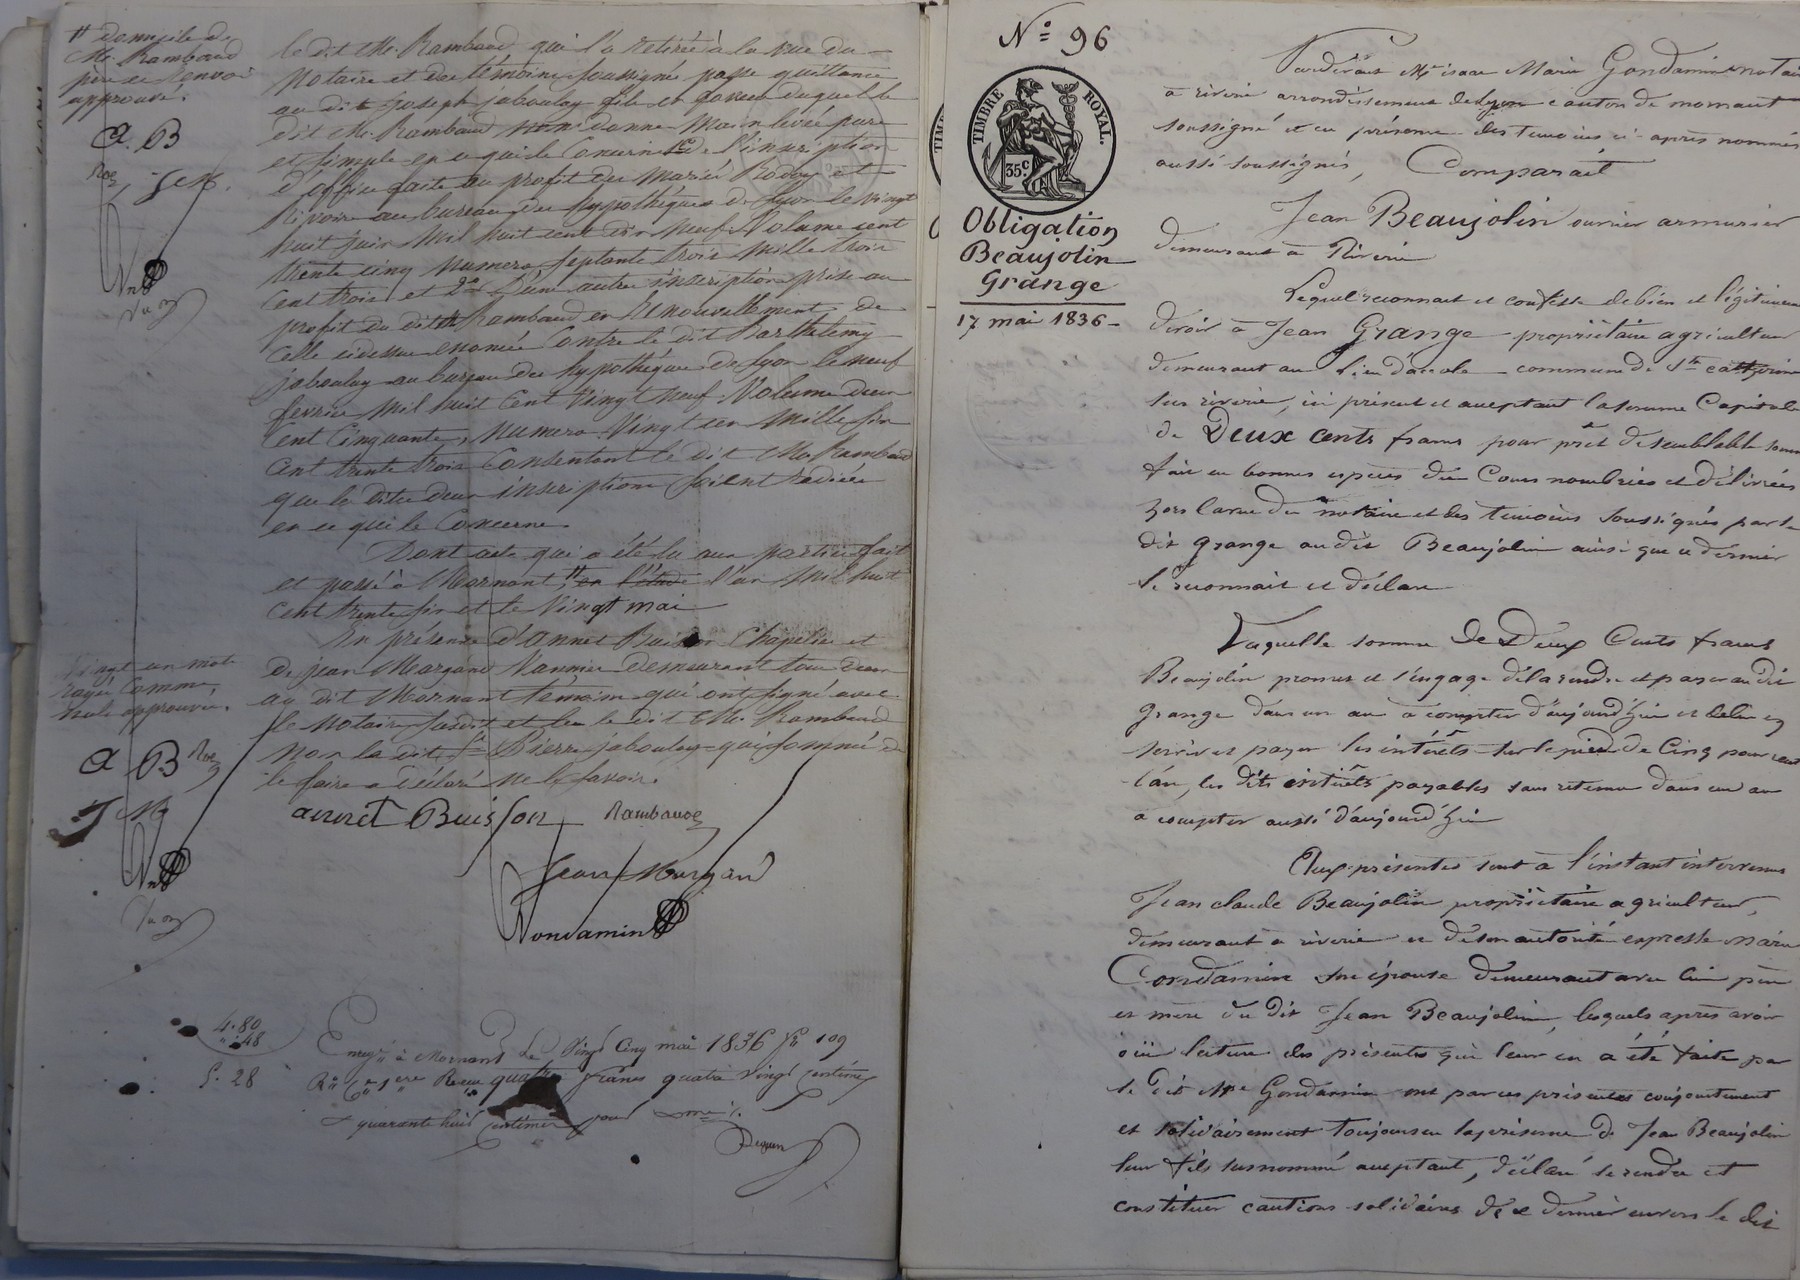 " domicile de
Me. Rambaud
par ce renvoi
approuvé.
a. B
Vingt un mots
rayés comme
nuls approuvés.
a B
le dit Me. Rambaud qui l'a retirée à la vue du
notaire et des témoins soussignés passe quittance
au dit Joseph jaboulay fils en faveur duquel le
dit Me. Rambaud donne main levée pure
et simple en ce qui le concerne de l'inscription
d'office faite au profit des mariés et
Rivoire au bureau des hypothèques de Lyon le vingt
huit juin mil huit cent dix neuf Volume cent
trente cinq numero septante trois mille trois
cent trois et 2° D'une autre inscription prise au
profit du dit Rambaud en Renouvellement de
celle cidessus enoncée contre le dit Barthelemy
jaboulay au bureau des hypothèques de Lyon le neuf
fevrier mil huit cent vingt neuf Volume deux
cent cinquante, numero Vingt un mille six
cent trente trois Consentant le dit Me Rambaud
que les dites deux inscriptions soient radiées
en ce qui le Concerne
Dont acte qui a été lu aux parties fait
et passé à Mornant, " en l'étude l'an mil huit
cent trente six et le Vingt mai
En présence d'annet Buisson Chapelier et
de jean Morgand Vannier demeurant tous deux
au dit Mornant temoins qui ont signé avec
le notaire susdit et le dit Me. Rambaud
non le dit Pierre jaboulay qui sommé de
le faire a déclaré ne le savoir.
annet Buisson Rambaud
Jean Morgand
Condamin
4.80
" 48
5.28
Enregé à Mornant le Vingt Cinq mai 1836 fo 109
Ro Ce 1ere Reçu quatre francs quatre vingt centimes
& quarante huit centimes pour
N° 96
TIMBRE ROYAL.
35 c.
Obligation
Beaujolin
Grange
17 mai 1836
Pardevant Me isaac Marie Gondamin notaire
à riverie arrondissement de Lyon canton de mornant
soussigné et en présence des temoins ci-après nommés
aussi soussignés, Comparait
Jean Beaujolin ouvrier armurier
demeurant à Riverie
Lequel reconnait et confesse debien et légitimement
devoir à Jean Grange propriétaire agriculteur
demeurant au lieu commune de Ste catherine
sur riverie, ici présent et acceptant la somme Capitale
de Deux cents francs pour prêt de semblable somme
fait en bonnes espèces du Cours nombrées et délivrées
hors la vue du notaire et des temoins soussignés par le
dit grange au dit Beaujolin ainsi que ce dernier
le reconnait et déclare
Laquelle somme de Deux Cents francs
Beaujolin promet et s'engage de la rendre et payer au dit
grange dans un an à compter d'aujourd'hui et de lui en
servir et payer les intérêts sur le pied de Cinq pour cent
l'an, les dits intérêts payables sans retenue dans un an
à compter aussi d'aujourd'hui
Aux présentes sont à l'instant intervenus
Jean claude Beaujolin propriétaire agriculteur,
demeurant à riverie et de son autorité expresse marie
Condamine son épouse demeurant avec lui père
et mère du dit Jean Beaujolin, lesquels après avoir
oüi lecture des présentes qui leur en a été faite par
le dit Me Gondamin ont par ces présentes conjointement
et solidairement toujours en la présence de Jean Beaujolin
leur fils susnommé acceptant, déclaré se rendre et
constituer cautions solidaires de ce dernier envers le dit